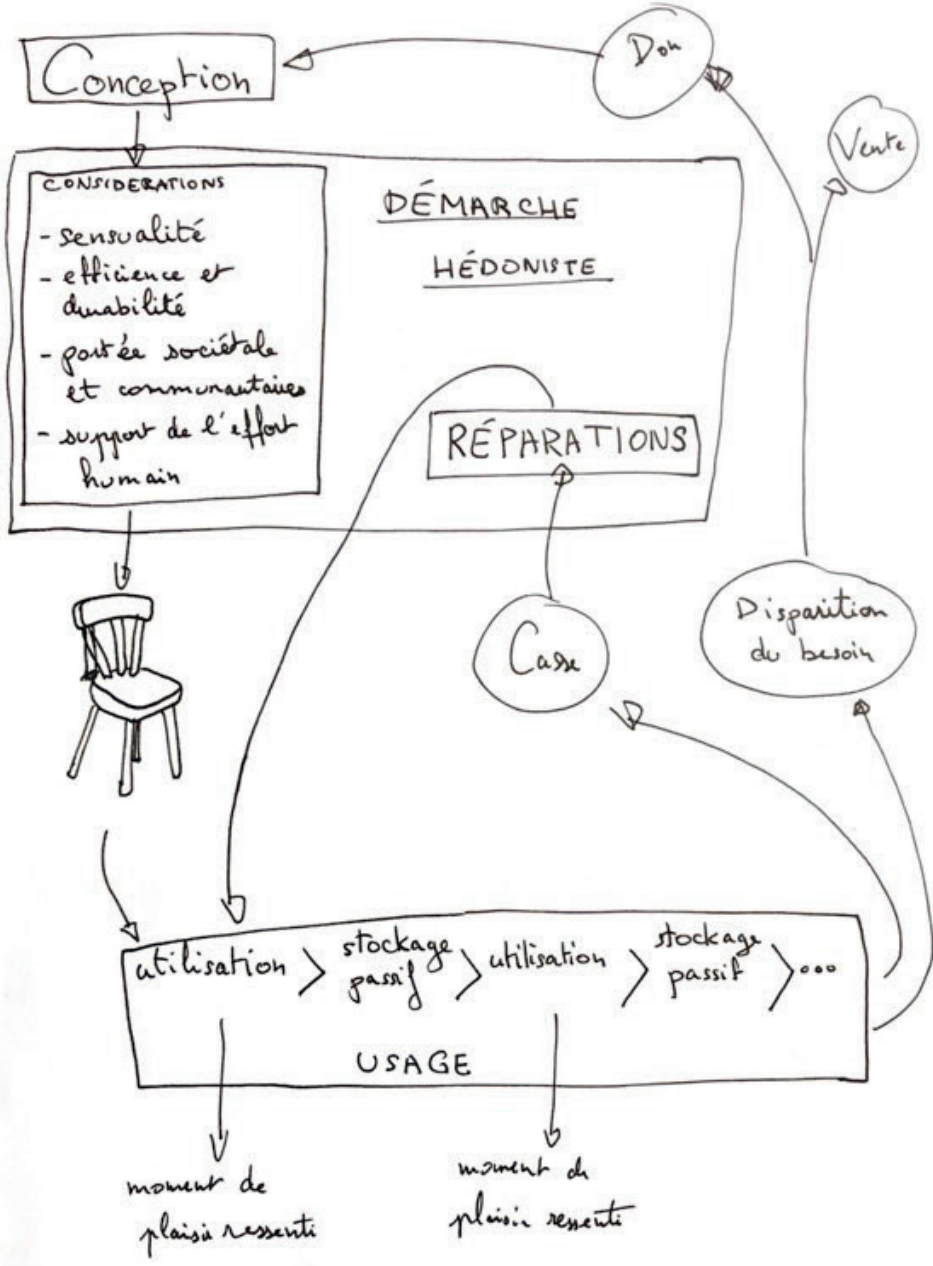 Conception
Don
Vente
CONSIDERATIONS
- sensualité
- efficience et
durabilité
- portée sociétale
et communautaires
- support de l'effort
humain
DÉMARCHE
HÉDONISTE
RÉPARATIONS
Casse
Disparition
du besoin
utilisation > stockage
passif > utilisation > stockage
passif > ...
USAGE
moment de
plaisir ressenti
moment de
plaisir ressenti